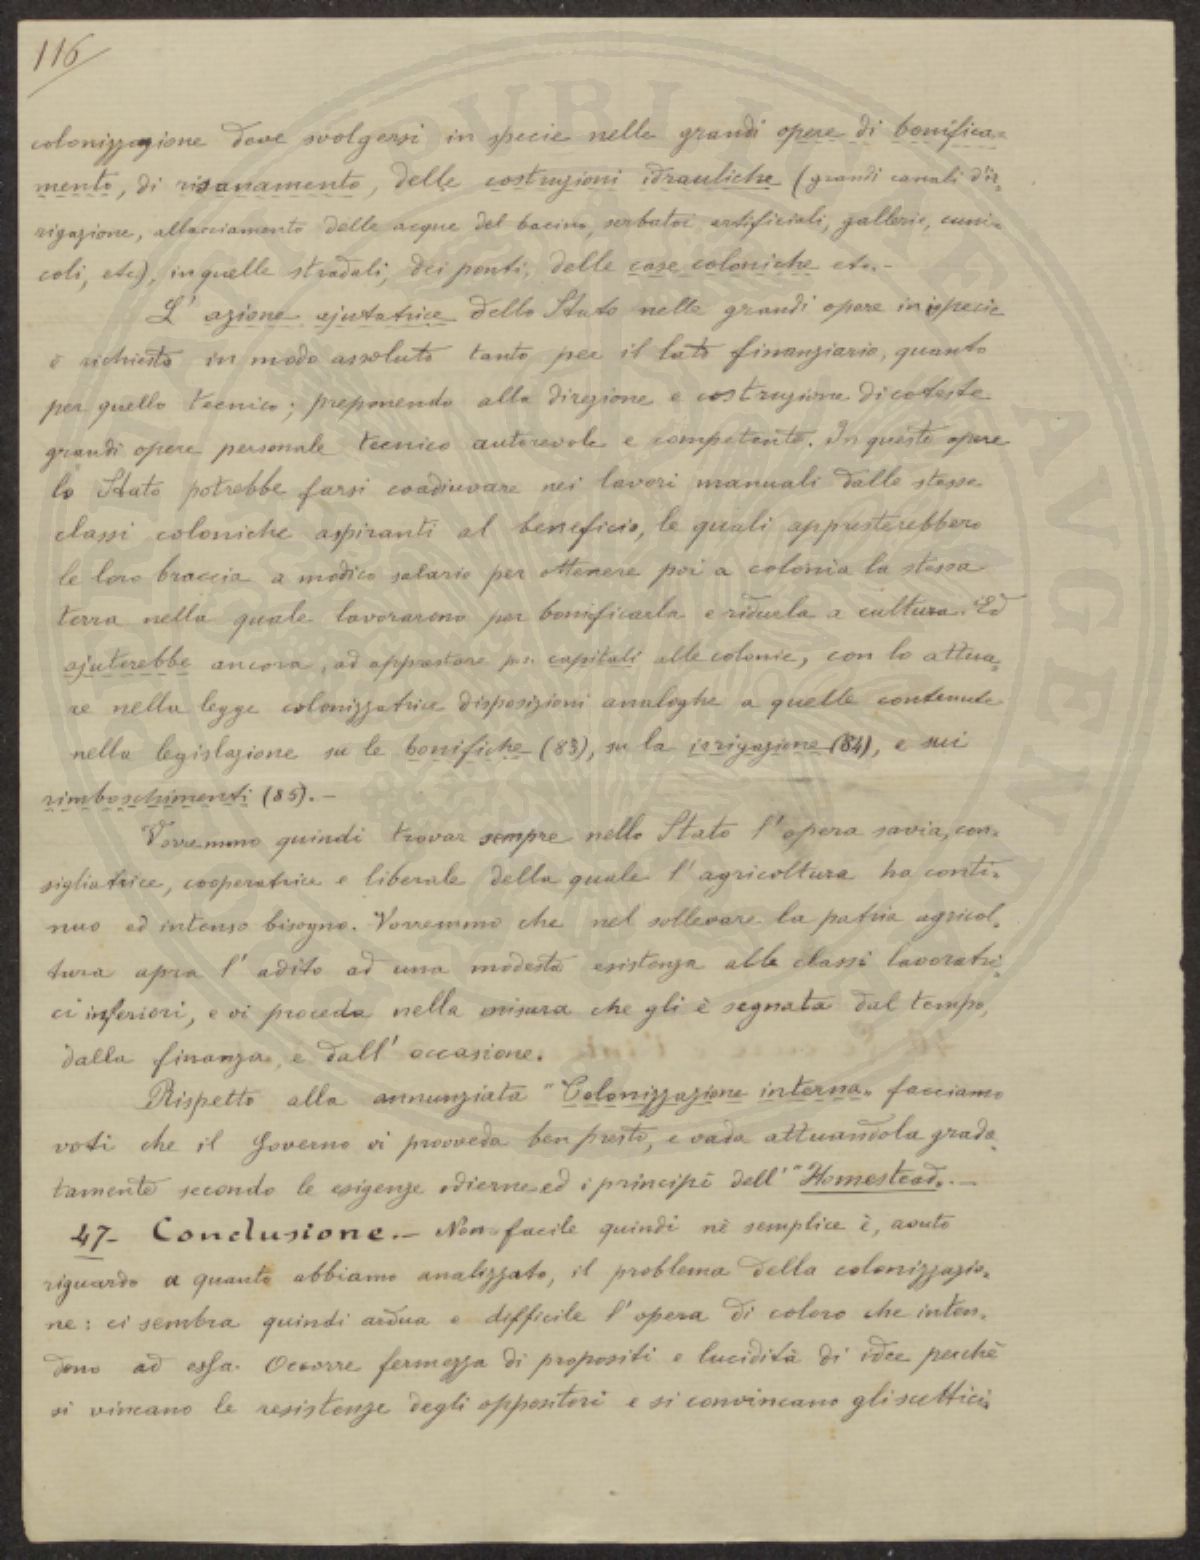 116
colonizzazione deve svolgersi in specie nelle grandi opere di bonifica=
mento, di risanamento, delle costruzioni idrauliche (grandi canali d'ir=
rigazione, allacciamento delle acque del bacino, serbatoi artificiali, gallerie, cuni=
coli, etc), in quelle stradali, dei ponti, delle case coloniche etc.-
L'azione ajutatrice dello Stato nelle grandi opere in ispecie
è richiesta in modo assoluto tanto per il lato finanziario, quanto
per quello tecnico; preponendo alla direzione e costruzione di coteste
grandi opere personale tecnico autorevole e competente. In queste opere
lo Stato potrebbe farsi coadiuvare nei lavori manuali dalle stesse
classi coloniche aspiranti al beneficio, le quali appresterebbero
le loro braccia a modico salario per ottenere poi a colonia la stessa
terra nella quale lavorarono per bonificarla e ridurla a cultura. Ed
ajuterebbe ancora, ad apprestare capitali alle colonie, con lo attua=
re nella legge colonizzatrice disposizioni analoghe a quelle contenute
nella legislazione su le bonifiche (83), su la irrigazione (84), e sui
rimboschimenti (85).-
Vorremmo quindi trovar sempre nello Stato l'opera savia, con=
sigliatrice, cooperatrice e liberale della quale l'agricoltura ha conti=
nuo ed intenso bisogno. Vorremmo che nel sollevare la patria agricol=
tura apra l'adito ad una modesta esistenza alle classi lavoratri=
ci inferiori, e vi proceda nella misura che gli è segnata dal tempo,
dalla finanza, e dall'occasione.
Rispetto alla annunziata "Colonizzazione interna" facciamo
voti che il Governo vi provveda ben presto, e vada attuandola grada=
tamente secondo le esigenze odierne ed i principî dell'"Homestead".-
47- Conclusione.- Non facile quindi nè semplice è, avuto
riguardo a quanto abbiamo analizzato, il problema della colonizzazio=
ne: ci sembra quindi ardua e difficile l'opera di coloro che inten=
dono ad essa. Occorre fermezza di propositi e lucidità di idee perchè
si vincano le resistenze degli oppositori e si convincano gli scettici.